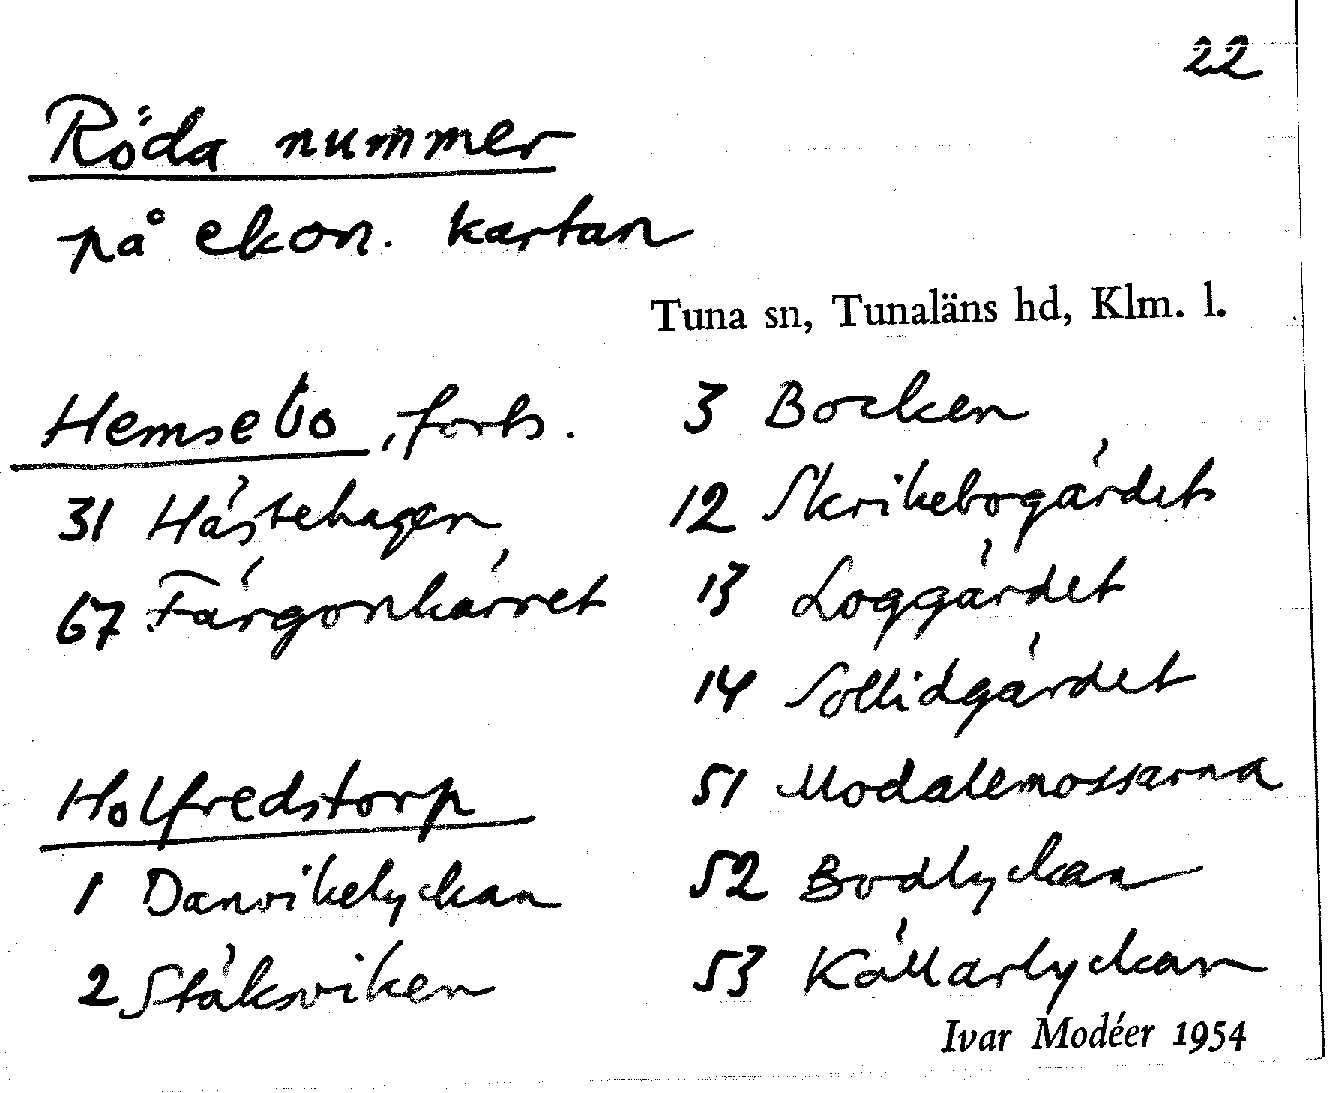 22
Röda nummer
på ekon. kartan
Tuna sn, Tunaläns hd, Klm. l.
Hemsebo, forts.
31 Hästehagen
67 Färgonkärret
Holfredstorp
1 Danvikelyckan
2 Stäksviken
3 Bocken
12 Skrikebogärdet
13 Loggärdet
14 Sollidgärdet
51 Modalemossarna
52 Bodlyckan
53 Källarlyckan
Ivar Modéer 1954